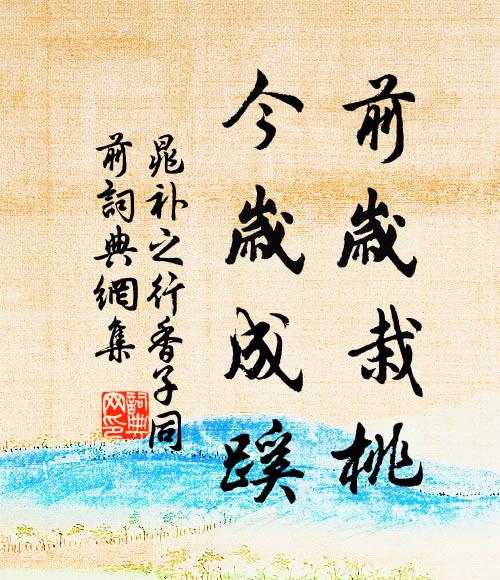 前歲栽桃
今歲成蹊
晁补之行香子同
前詞典網集
詞典
网印